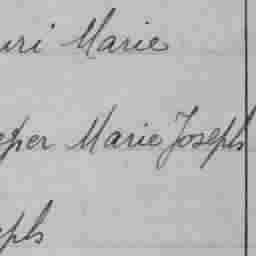 uri Marie
eper Marie Joseph
eph